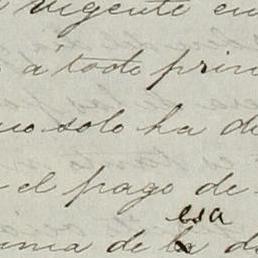 vigente en
á todo prin
uo solo ha de
el pago de
esa
uma de la d